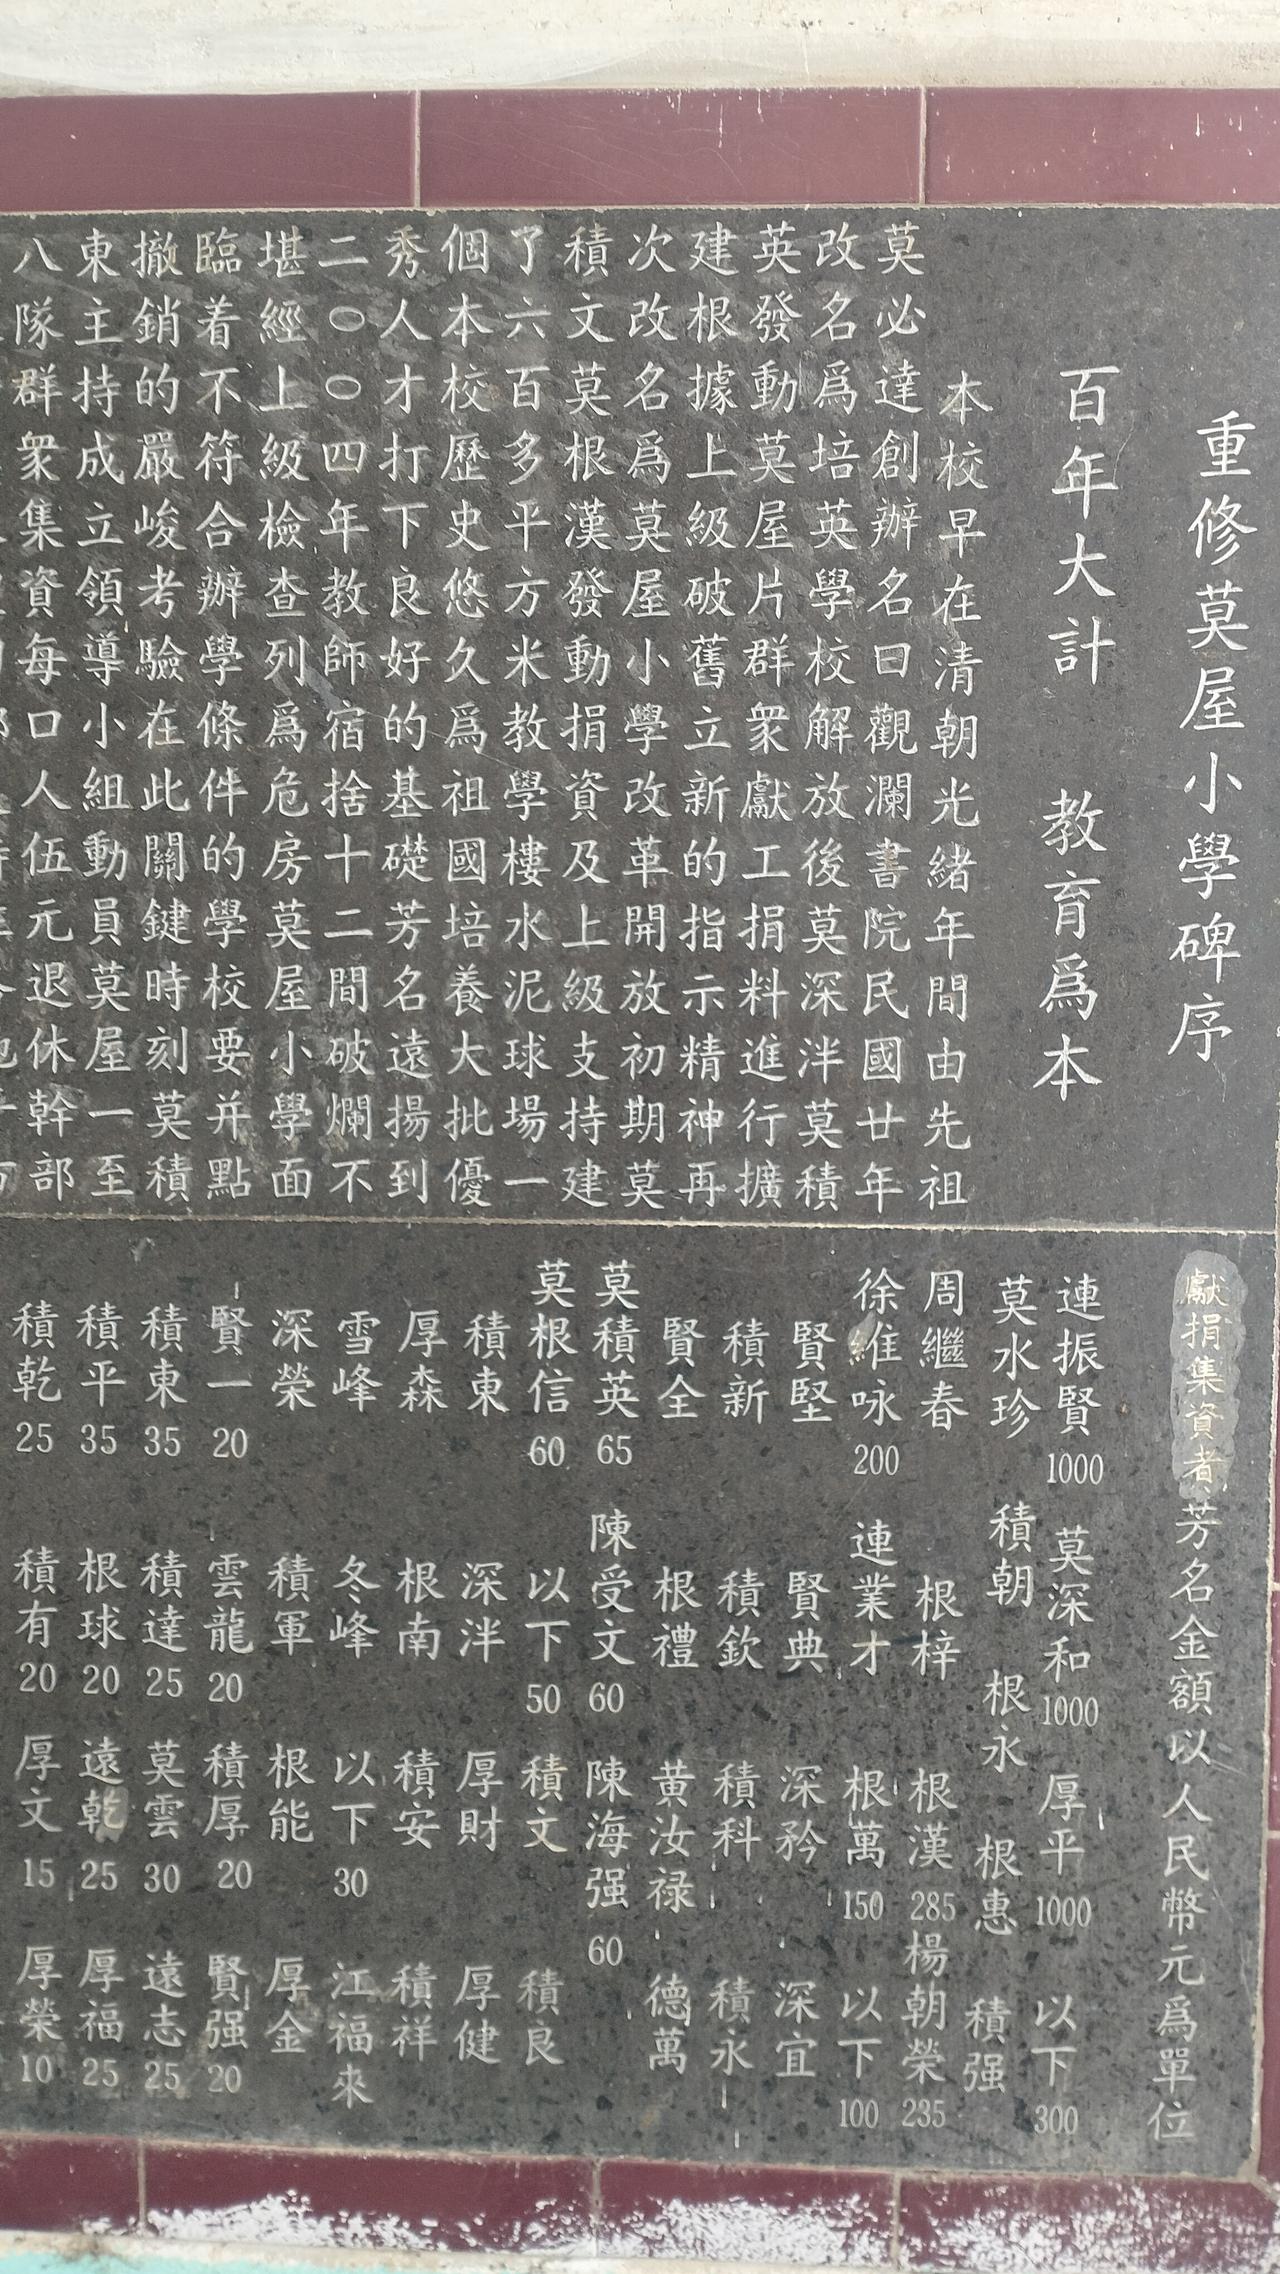 重修莫屋小學碑序
百年大計　教育爲本
本校早在清朝光緒年間由先祖
莫必達創辦名曰觀瀾書院民國廿年
改名爲培英學校解放後莫深泮莫積
英發動莫屋片群衆獻工捐料進行擴
建根據上級破舊立新的指示精神再
次改名爲莫屋小學改革開放初期莫
積文莫根漢發動捐資及上級支持建
了六百多平方米教學樓水泥球場一
個本校歷史悠久爲祖國培養大批優
秀人才打下良好的基礎芳名遠揚到
二〇〇四年教師宿捨十二間破爛不
堪經上級檢查列爲危房莫屋小學面
臨着不符合辦學條件的學校要并點
撤銷的嚴峻考驗在此關鍵時刻莫積
東主持成立領導小組動員莫屋一至
八隊群衆集資每口人伍元退休幹部
獻捐集資者芳名金額以人民幣元爲單位
連振賢1000　莫深和1000　厚平1000　以下300
莫水珍　積朝　根永　根惠　積强
周繼春　根梓　根漢285　楊朝榮235
徐維咏200　連業才　根萬150　以下100
賢堅　賢典　深矜　深宜
積新　積欽　積科　積永
賢全　根禮　黄汝禄　德萬
莫積英65　陳受文60　陳海强60
莫根信60　以下50　積文　積良
積東　深泮　厚財　厚健
厚森　根南　積安　積祥
雪峰　冬峰　以下30　江福來
深榮　積軍　根能　厚金
賢一20　雲龍20　積厚20　賢强20
積東35　積達25　莫雲30　遠志25
積平35　根球20　遠乾25　厚福25
積乾25　積有20　厚文15　厚榮10